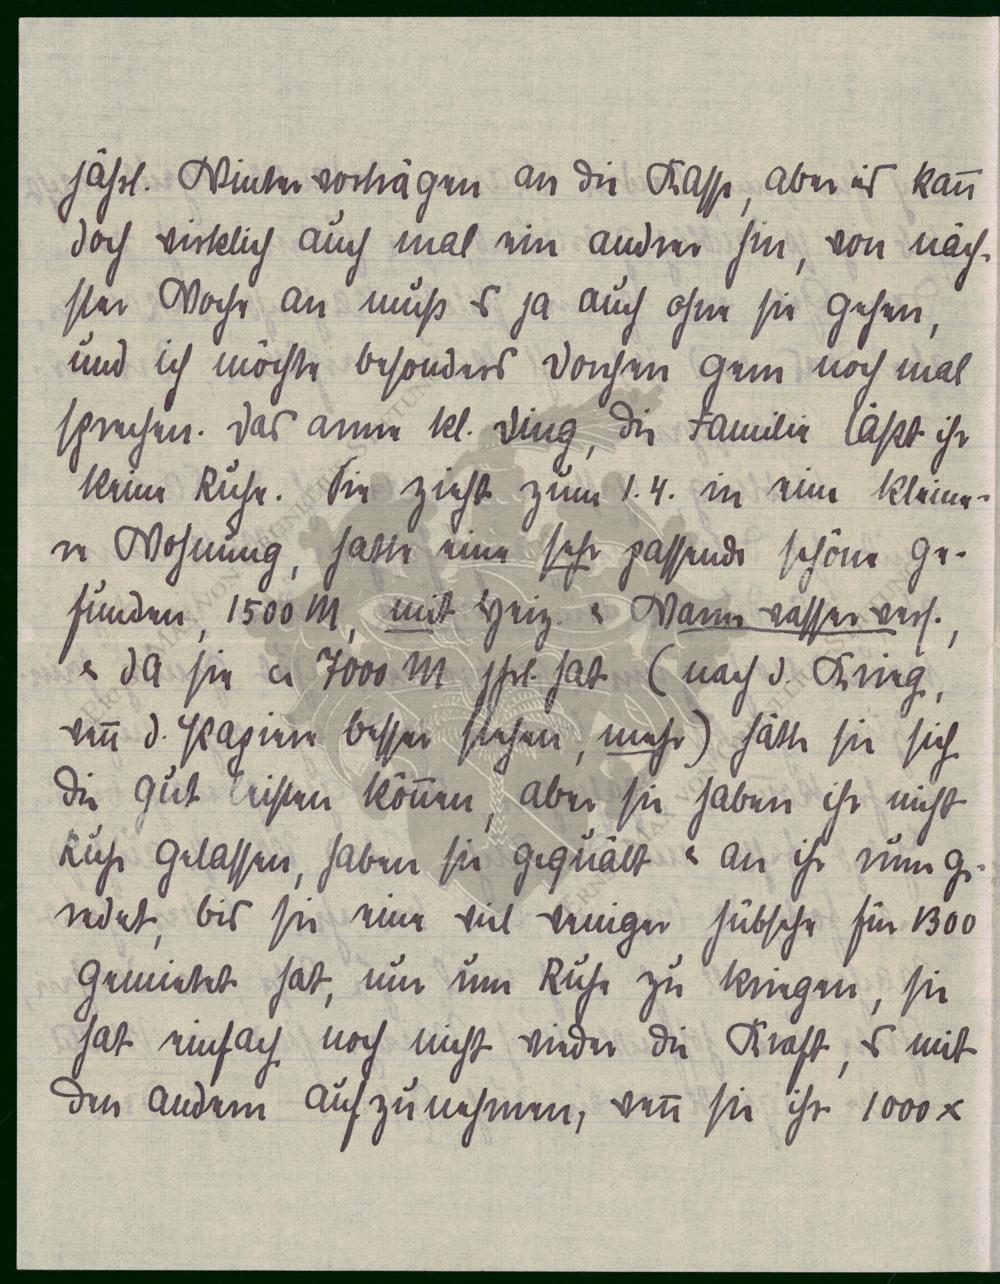 jährl. Wintervorträgen an die Kasse, aber es kan̅
doch wirklich auch mal ein andrer hin, von näch-
ster Woche an muß es ja auch ohne sie gehen,
und ich möchte besonders Dorchen gern noch mal
sprechen. Das arme kl. Ding, die Familie läßt ihr
keine Ruhe. Sie zieht zum 1.4. in eine kleine-
re Wohnung, hatte eine sehr passende schöne ge-
funden, 1500 M, mit Heiz. & Warmwasservers.,
& da sie ca 7000 M jhrl. hat (nach d. Krieg,
wen̅ d. Papiere besser stehen, mehr) hätte sie sich
die gut leisten kön̅en, aber sie haben ihr nicht
Ruhe gelassen, haben sie gequält & an ihr rumge-
redet, bis sie eine viel weniger hübsche für 1300
gemietet hat, nur um Ruhe zu kriegen, sie
hat einfach noch nicht wieder die Kraft, es mit
den andern aufzunehmen, wen̅ sie ihr 1000 x